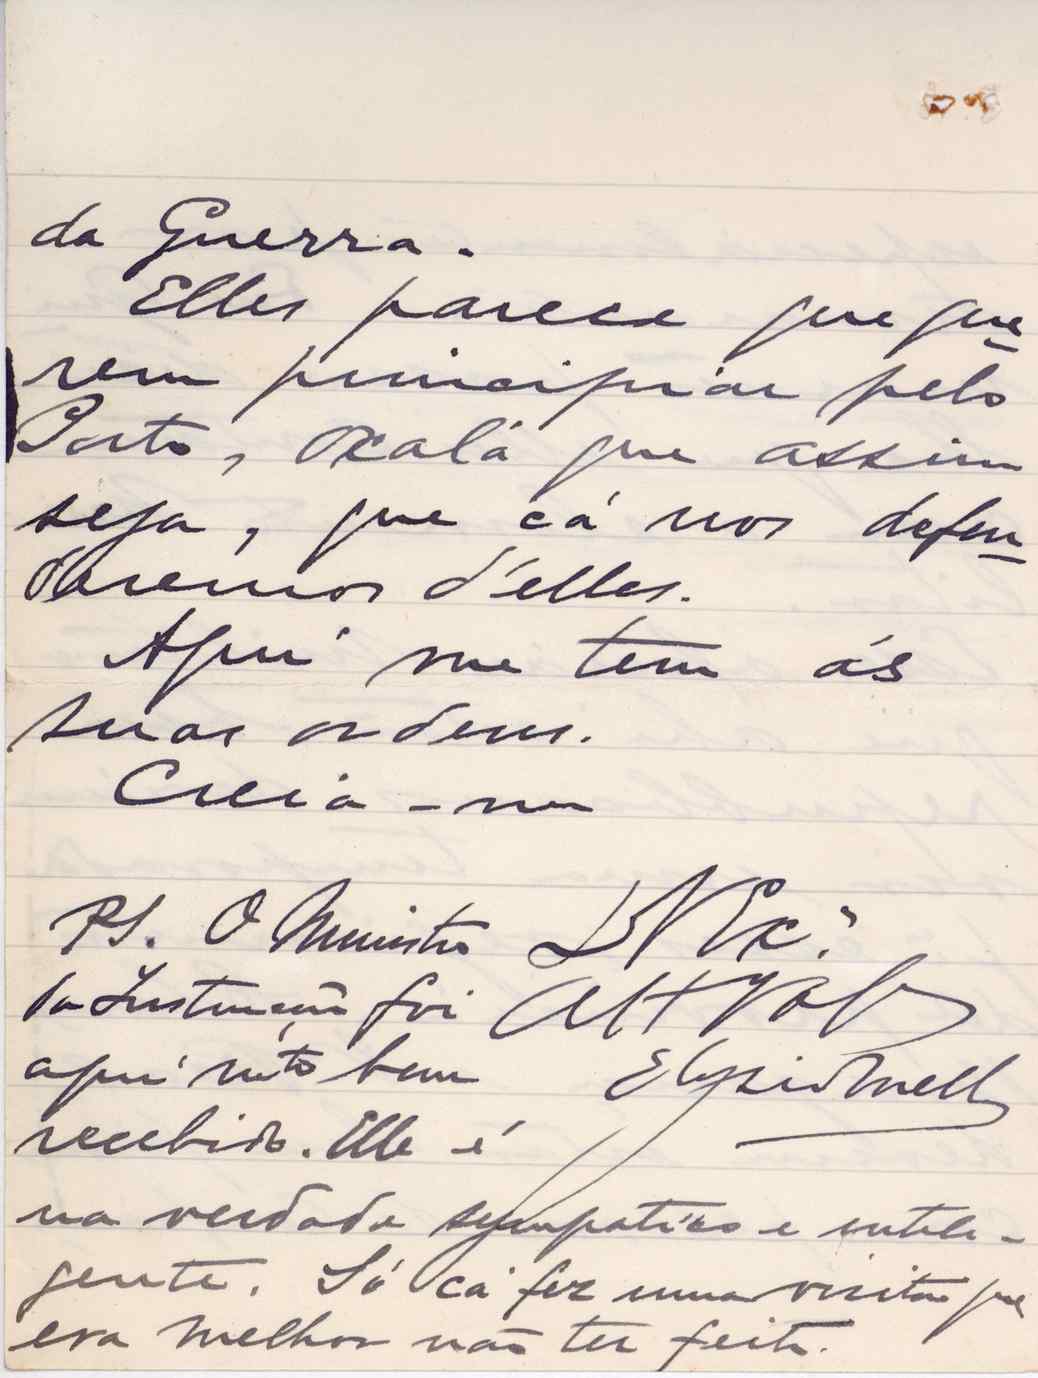 da Guerra.
Elles parece que que-
rem principiar pelo
Porto, oxalá que assim
seja, que cá nos defen-
deremos d'elles.
Aqui me tem ás
suas ordens.
Creia-me
De V. Exc.ª
Att.º
Elysio Mello
PS. O Ministro
da Instrução foi
aqui mto bem
recebido. Elle é
na verdade sympatico e intele-
gente. Só cá fez uma visita que
era melhor não ter feito.